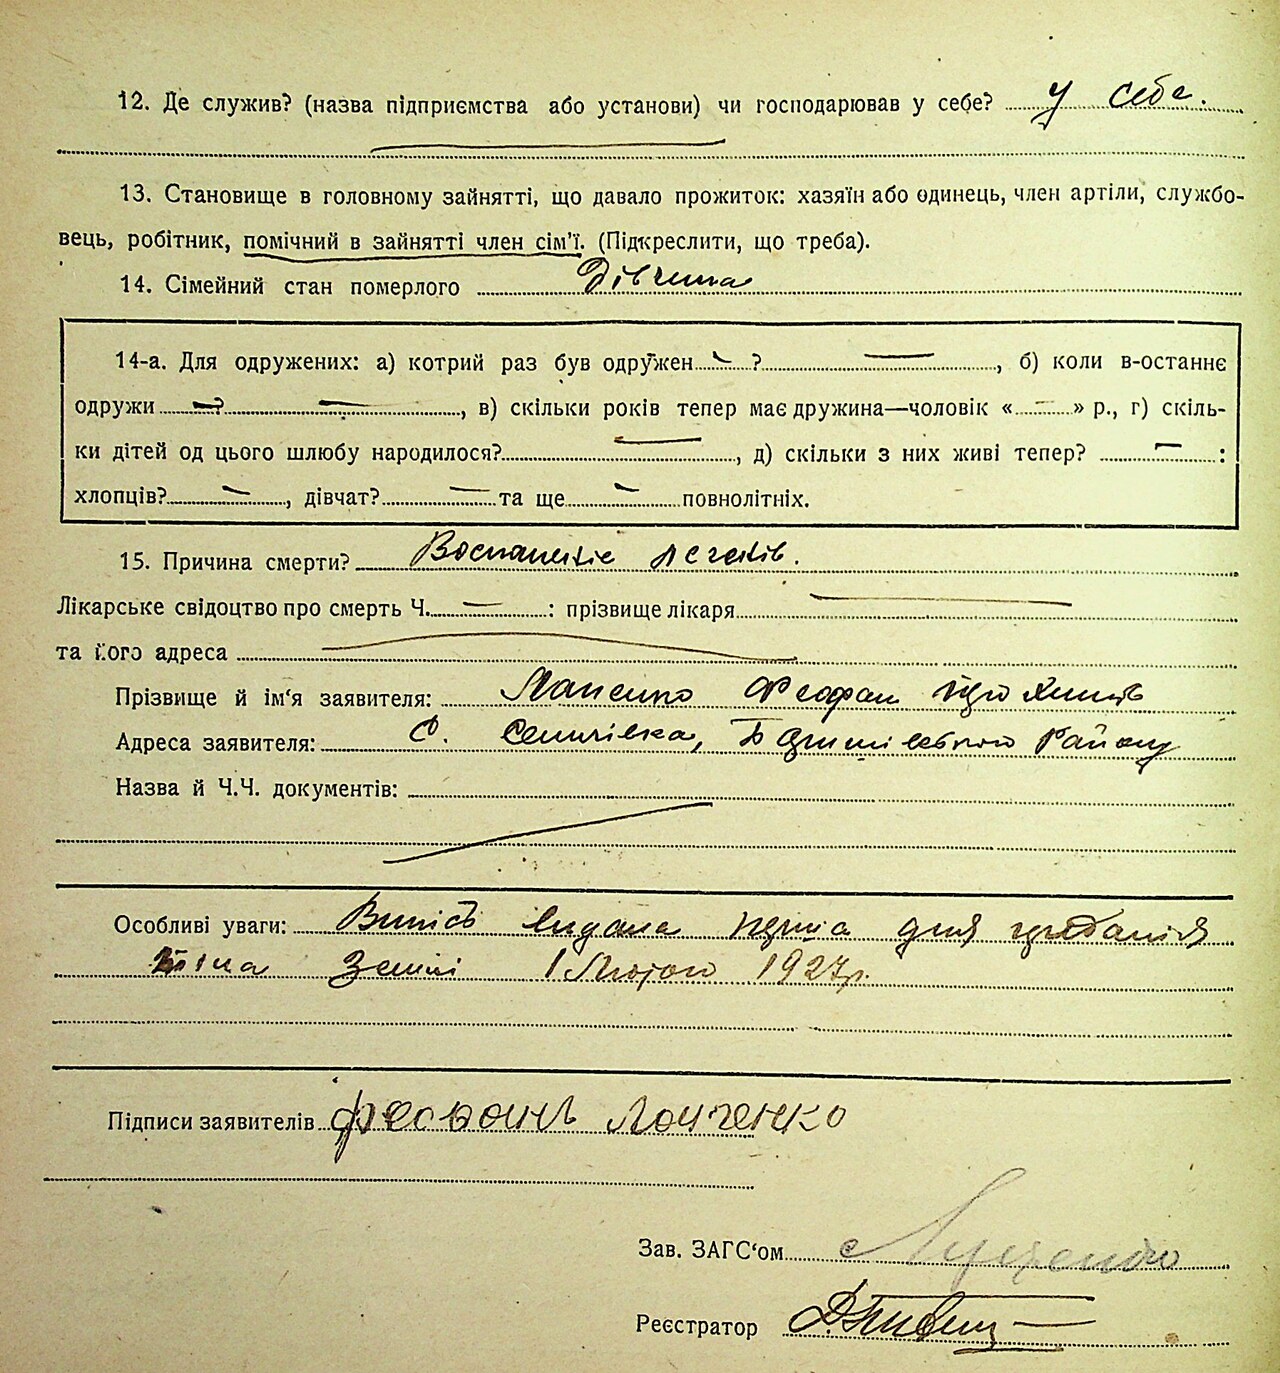 12. Де служив? (назва підприємства або установи) чи господарював у себе? у себе.
13. Становище в головному зайнятті, що давало прожиток: хазяїн або одинець, член артіли, службо-
вець, робітник, помічний в зайнятті член сім'ї. (Підкреслити, що треба).
14. Сімейний стан померлого Дівчина
14-а. Для одружених: а) котрий раз був одружен — ? —, б) коли в-останнє
одружи —? —, в) скільки років тепер має дружина—чоловік « — » р., г) скіль-
ки дітей од цього шлюбу народилося? —, д) скільки з них живі тепер? — :
хлопців? —, дівчат? — та ще — повнолітніх.
15. Причина смерти? Воспаленіє легків.
Лікарське свідоцтво про смерть Ч. — : прізвище лікаря —
та його адреса —
Прізвище й ім'я заявителя: Феофан
Адреса заявителя: С. Семчівка, Району
Назва й Ч.Ч. документів:
Особливі уваги: Випісь видана перша для
тіла землі 1 Лютого 1927р.
Підписи заявителів
Зав. ЗАГС'ом
Реєстратор